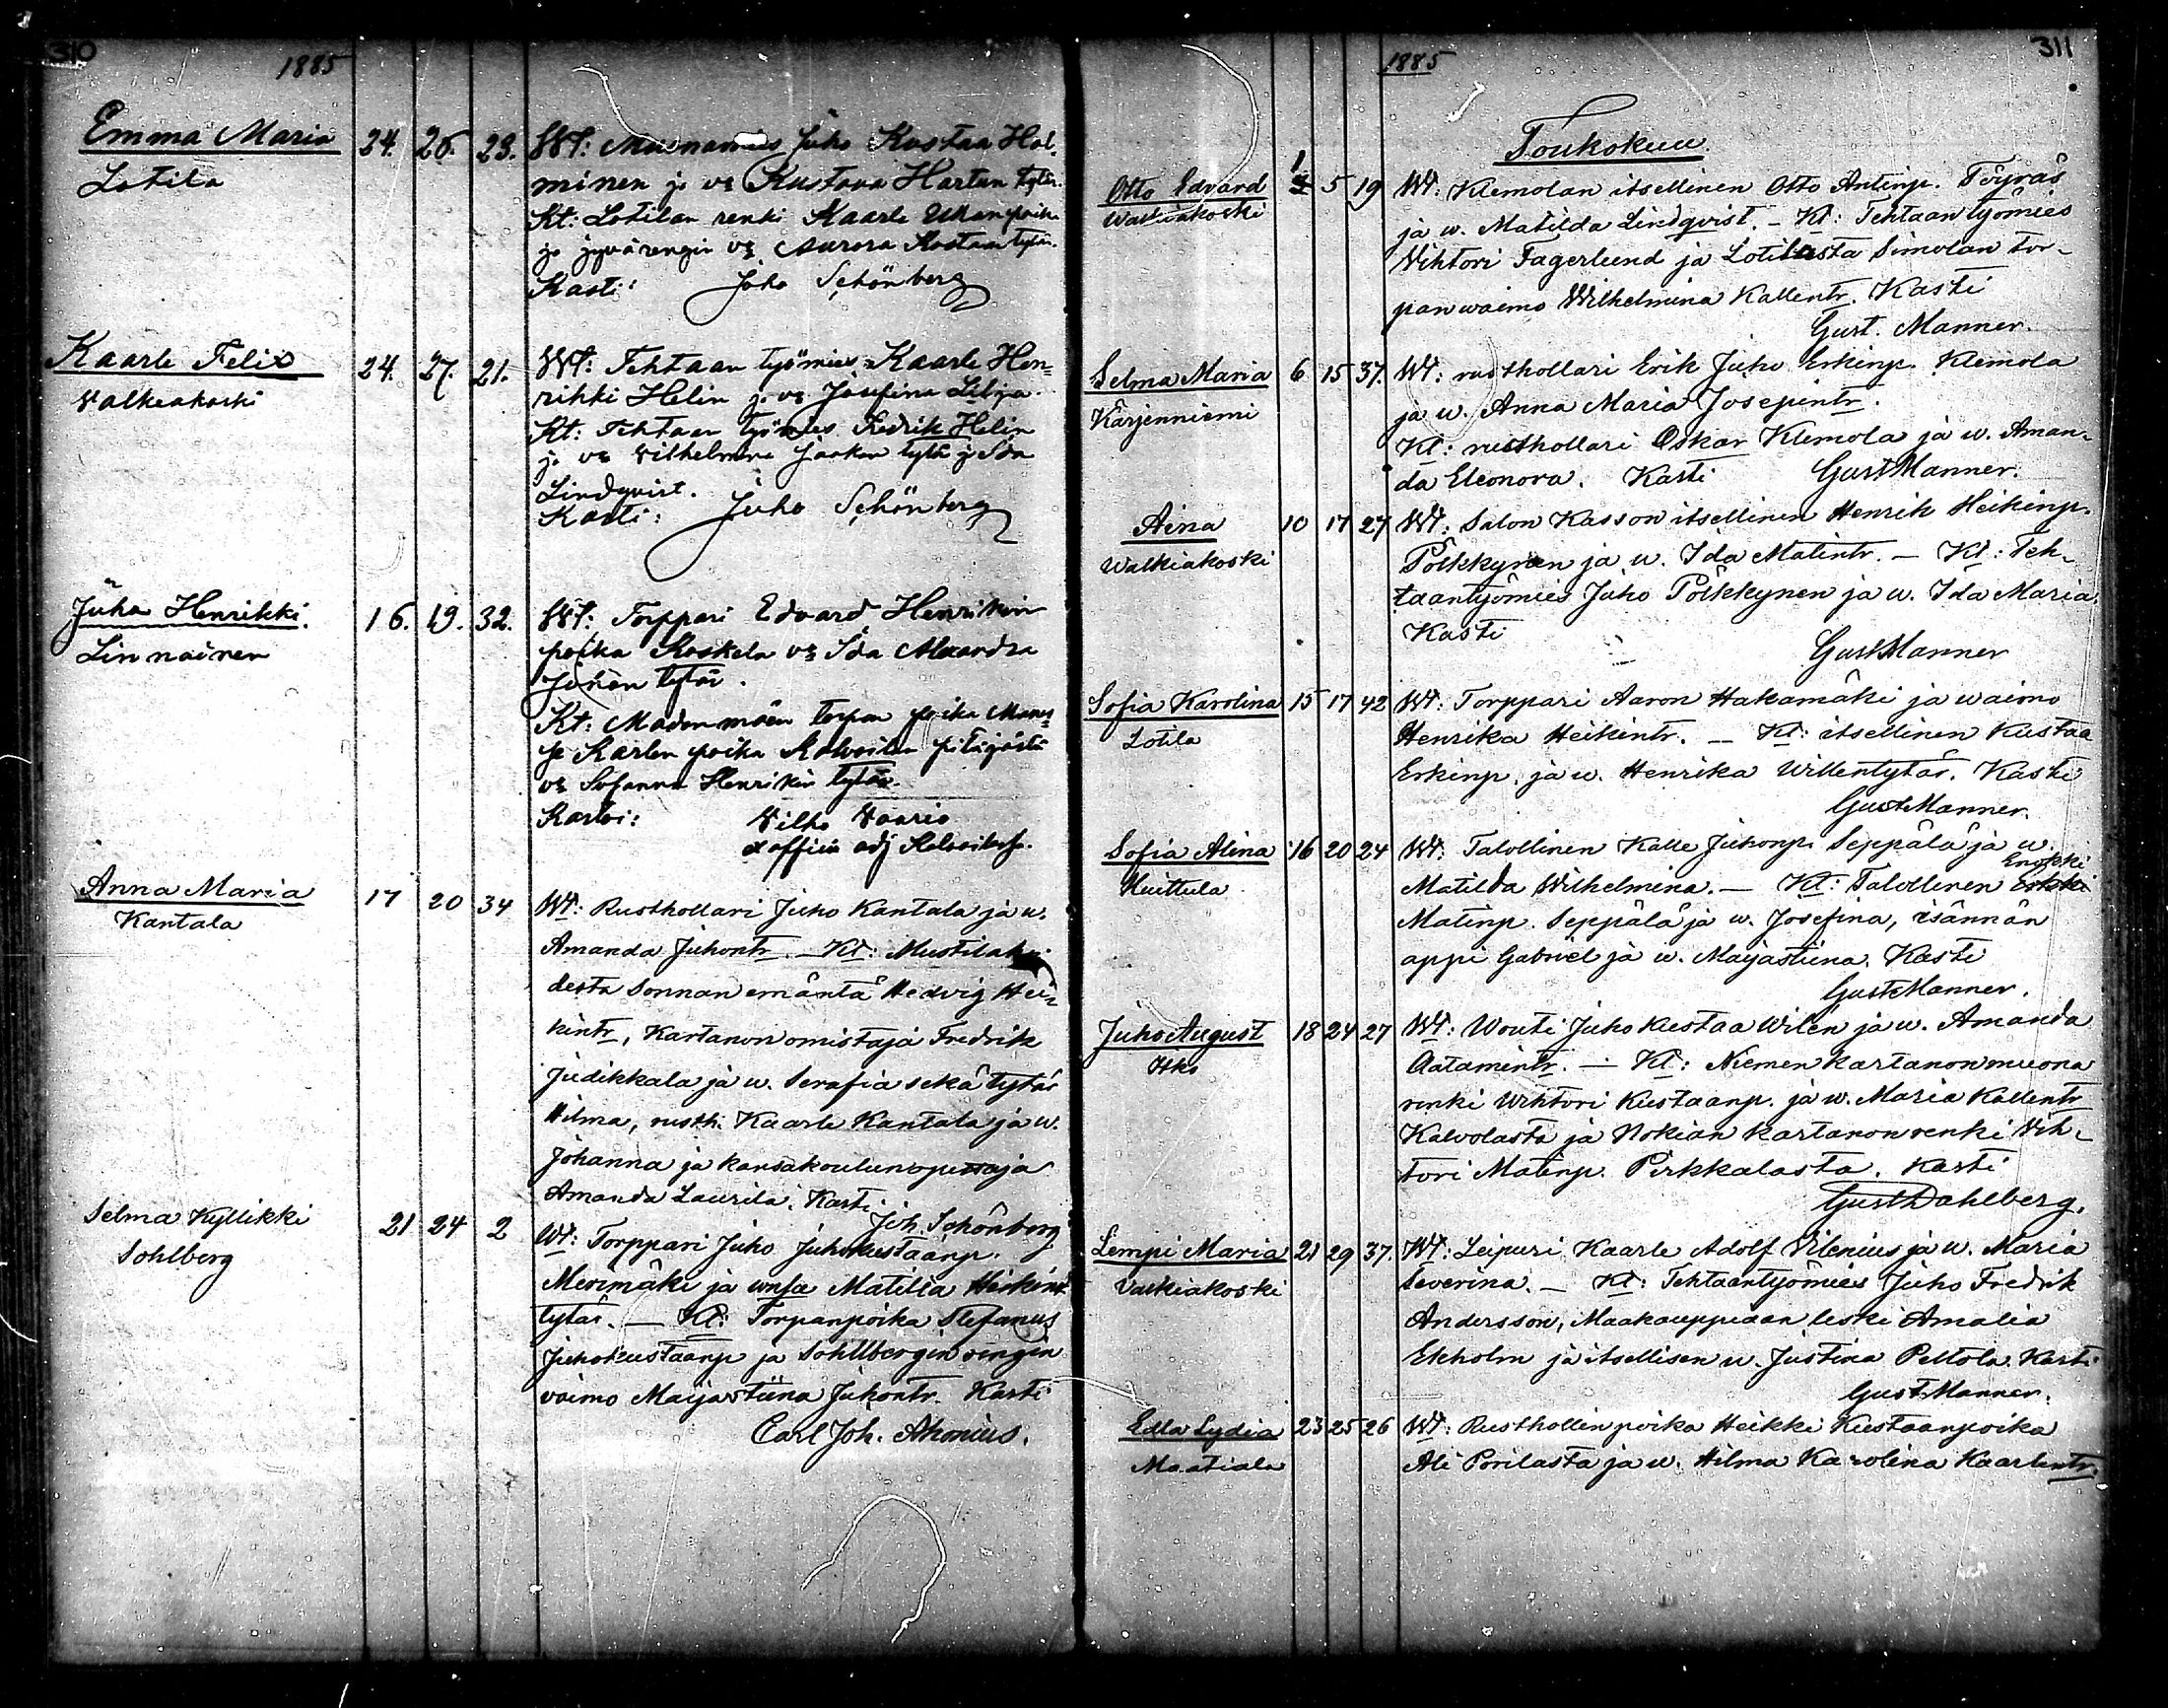 310
1885
Emma Maria 24. 26. 23. Wt: Muonamies Juho Kustaa Hol-
Lotila minen ja vo Kustava Hartan tytär.
Kt: Lotilan renki Kaarle
ja jyvärengin vo Aurora Kustaan tytär.
Kasti: Juho Schönberg
Kaarle Felix 24. 27. 21. Wt: Tehtaan työmies Kaarle Hen=
Valkeakoski rikki Helin ja vo Josefina Lilja.
Kt: Tehtaan työmies Fredrik Helin
ja vo Vilhelmina Jaakon tytär ja Ida
Lindqvist.
Kasti: Juho Schönberg
Juho Henrikki. 16. 19. 32. Wt: Torppari Edvard Henrikin
Linnainen poika Koskela vo Ida Alexandra
Juhan tytär.
Kt: Madonmäen torpan poika
Karlen poika Kalvoilan pitäjästä
vo Sofanna Henrikin tytär.
Kastoi: Vilho Vaario
ex officio adj
Anna Maria 17 20 34 Wt: Rusthollari Juho Kantala ja w.
Kantala Amanda Juhontr. — Kt: Mustilah-
desta Sonnan emäntä Hedvig Hei-
kintr, Kartanon omistaja Fredrik
Judikkala ja w. Serafia sekä tytär
Hilma, rusth. Kaarle Kantala ja w.
Johanna ja kansakoulunopettaja
Amanda Laurila. Kasti
Joh. Schönberg
Selma Kyllikki 21 24 2 Wt: Torppari Juho Juhokustaanp.
Sohlberg Merimäki ja wmsa Matilta Heikin
tytär. — Kt: Torpanpoika Stefanus
Juhokustaanp ja Sohllbergin rengin
vaimo Maijastiina Juhontr. Kasti
Carl Joh. Ahonius.
311
1885
Toukokuu
1
Otto Edvard 3 5 19 Wt: Klemolan itsellinen Otto Antinp. Töyräs
Walkiakoski ja w. Matilda Lindqvist. — Kt: Tehtaan työmies
Vihtori Fagerlund ja Lotilasta Simolan tor-
panwaimo Wilhelmina Kallentr. Kasti
Gust. Manner.
Selma Maria 6 15 37. Wt: rusthollari Erik Juho Erkinp. Klemola
Kärjenniemi ja w. Anna Maria Josepintr.
Kt: rusthollari Oskar Klemola ja w. Aman-
da Eleonora. Kasti Gust Manner.
Aina 10 17 27 Wt: Salon Kasson itsellinen Henrik Heikinp.
Walkiakoski Pölkkynen ja w. Ida Matintr. — Kt: Teh-
taantyömies Juho Pölkkynen ja w. Ida Maria.
Kasti
Gust Manner
Sofia Karolina 15 17 42 Wt: Torppari Aaron Hakamäki ja waimo
Lotila Henrika Heikintr. — Kt: itsellinen Kustaa
Erkinp. ja w. Henrika Willentytär. Kasti
Gust Manner.
Sofia Alina 16 20 24 Wt: Talollinen Kalle Juhonp. Seppälä ja w.
Huittula Matilda Wilhelmina. — Kt: Talollinen Enokki
Matinp. Seppälä ja w. Josefina, isännän
appi Gabriel ja w. Maijastiina. Kasti
Gust Manner.
Juho August 18 24 27 Wt: Wouti Juho Kustaa Wilén ja w. Amanda
Aatamintr. — Kt: Niemen kartanon muona
renki Wihtori Kustaanp. ja w. Maria Kallentr
Kalvolasta ja Nokian kartanon renki Vih-
tori Matinp. Pirkkalasta. Kasti
Gust Dahlberg.
Lempi Maria 21 29 37. Wt: Leipuri Kaarle Adolf Vilenius ja w. Maria
Valkiakoski Severina. — Kt: Tehtaantyömies Juho Fredrik
Andersson, Maakauppiaan leski Amalia
Ekholm ja itsellisen w. Justina Peltola. Kasti
Gust Manner.
Edla Lydia 23 25 26 Wt: Rusthollinpoika Heikki Kustaanpoika
Maatiala Ali Porilasta ja w. Hilma Karolina Kaarlentr.